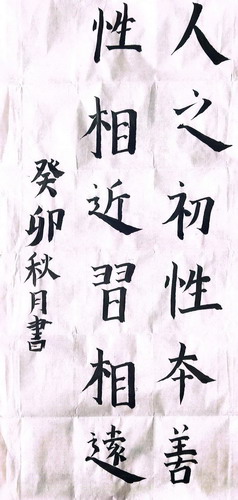 人之初性本善
性相近習相遠
癸卯秋月書